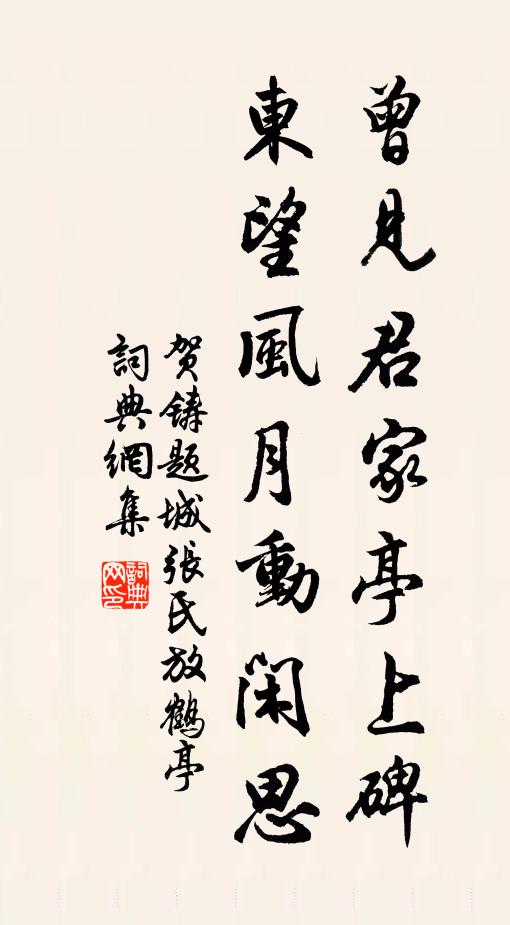 曾見君家亭上碑
東望風月動閑思
贺鑄題城張氏放鶴亭
詞典網集
詞典
网印